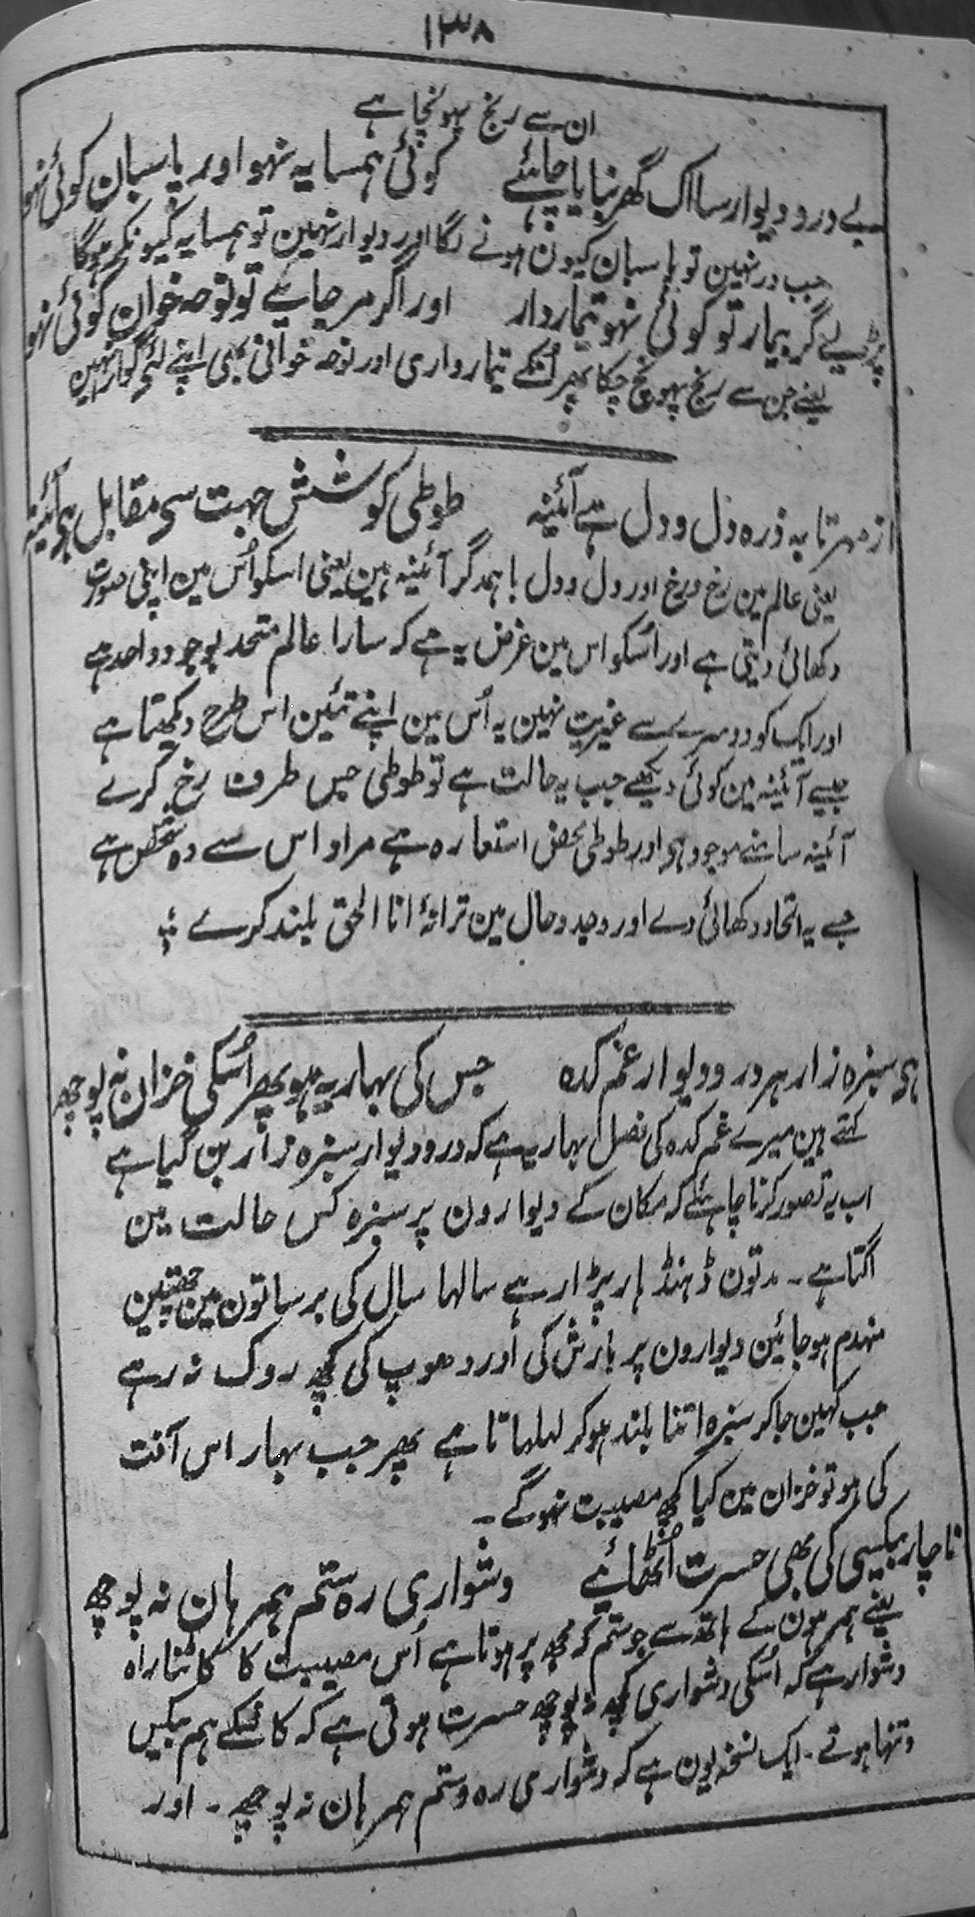 ۱۳۸
ان سے رنج پہونچا ہے
بے در و دیوار سا اک گھر بنایا چاہئے کوئی ہمسایہ نہو اور پاسبان کوئی نہو
جب در نہین تو پاسبان کیون ہونے لگا اور دیوار نہین تو ہمسایہ کیونکر ہوگا
پڑیے گر بیمار تو کوئی نہو تیماردار اور اگر مر جایئے تو نوحہ خوان کوئی نہو
یعنے جن سے رنج پہونچ چکا پھر اُنکے تیمارداری اور نوحہ خوانی بھی اپنے لئے گوارا نہین
از مہر تا بہ ذرہ دل و دل ہے آئینہ طوطی کو شش جہت سی مقابل ہی آئینہ
یعنی عالم مین رخ و رخ اور دل و دل باہمدگر آئینہ ہین یعنی اسکو اُس مین اپنی صورت
دکھائی دیتی ہے اور اُسکو اس مین غرض یہ ہے کہ سارا عالم متحد بوجود واحد ہے
اور ایک کو دوسرے سے غیریت نہین یہ اُس مین اپنے تئین اس طرح دیکھتا ہے
جیسے آئینہ مین کوئی دیکھے جب یہ حالت ہے تو طوطی جس طرف رخ کرے
آئینہ سامنے موجود ہی اور طوطی محض استعارہ ہے مراد اس سے وہ شخص ہے
جسے یہ اتحاد دکھائی دے اور وجد و حال مین ترانۂ انا الحق بلند کرے
ہی سبزہ زار ہر در و دیوار غمکدہ جس کی بہار یہ ہو پھر اُسکی خزان نہ پوچھ
کہتے ہین میرے غمکدہ کی فصل بہار یہ ہے کہ در و دیوار سبزہ زار بن گیا ہے
اب یہ تصور کرنا چاہئے کہ مکان کے دیوارون پر سبزہ کس حالت مین
اگتا ہے ۔ مدتون ڈھنڈھار پڑا رہے سالہا سال کی برساتون مین چھتین
منہدم ہو جائین دیوارون پر بارش کی اور دھوپ کی کچھ روک نہ رہے
جب کہین جا کر سبزہ اتنا بلند ہو کر لہلہاتا ہے پھر جب بہار اس آفت
کی ہو تو خزان مین کیا کچھ مصیبت نہوگے ۔
ناچار بیکسی کی بھی حسرت اُٹھائیے دشواری رہ ستم ہمرہان نہ پوچھ
یعنے ہمرہون کے ہاتھ سے جو ستم کہ مجھ پر ہوتا ہے اُس مصیبت کا کاٹنا راہ
دشوار ہے کہ اُسکی دشواری کچھ نہ پوچھ حسرت ہوتی ہے کہ کاشکے ہم بیکس
و تنہا ہوتے ۔ ایک نسخہ یون ہے کہ دشواری رہ و ستم ہمرہان نہ پوچھ ۔ اور